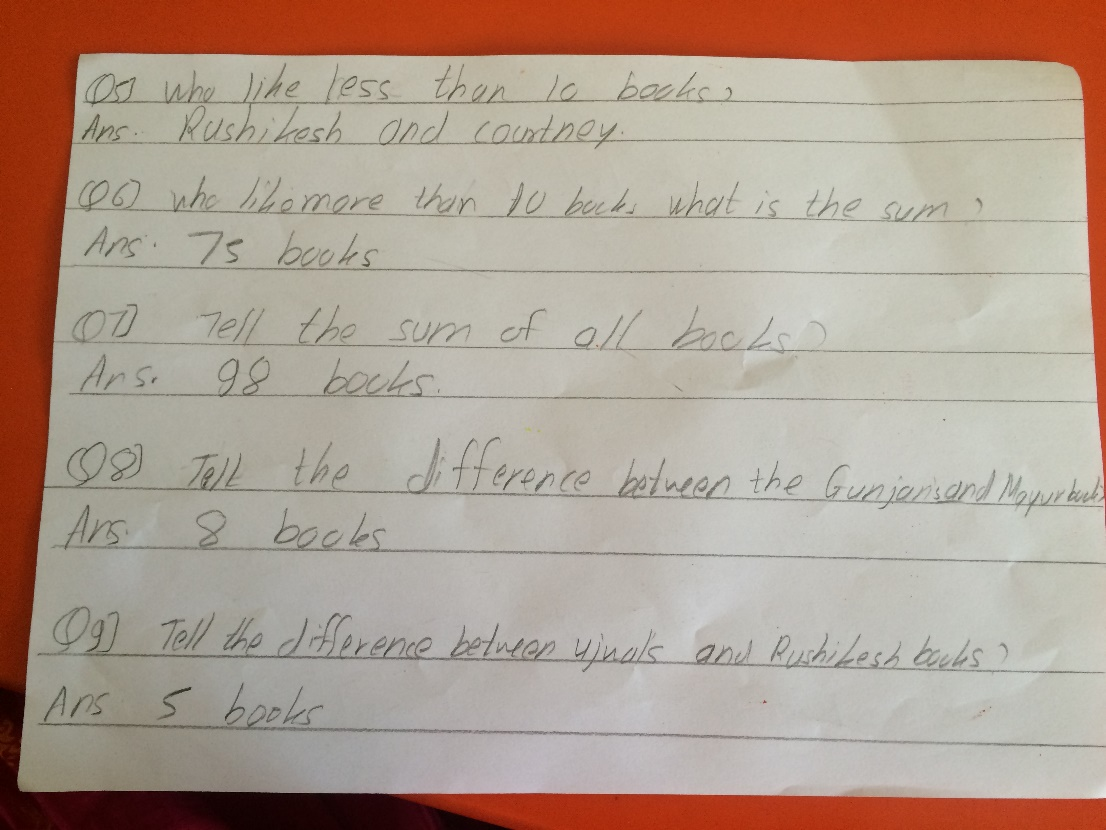 Q5] who like less than 10 books?
Ans. Rushikesh and courtney.
Q6) who like more than 10 books what is the sum?
Ans. 75 books
Q7] Tell the sum of all books?
Ans. 98 books.
Q8) Tell the difference between the Gunjan's and Mayur books
Ans. 8 books
Q9] Tell the difference between ujwal's and Rushikesh books?
Ans 5 books